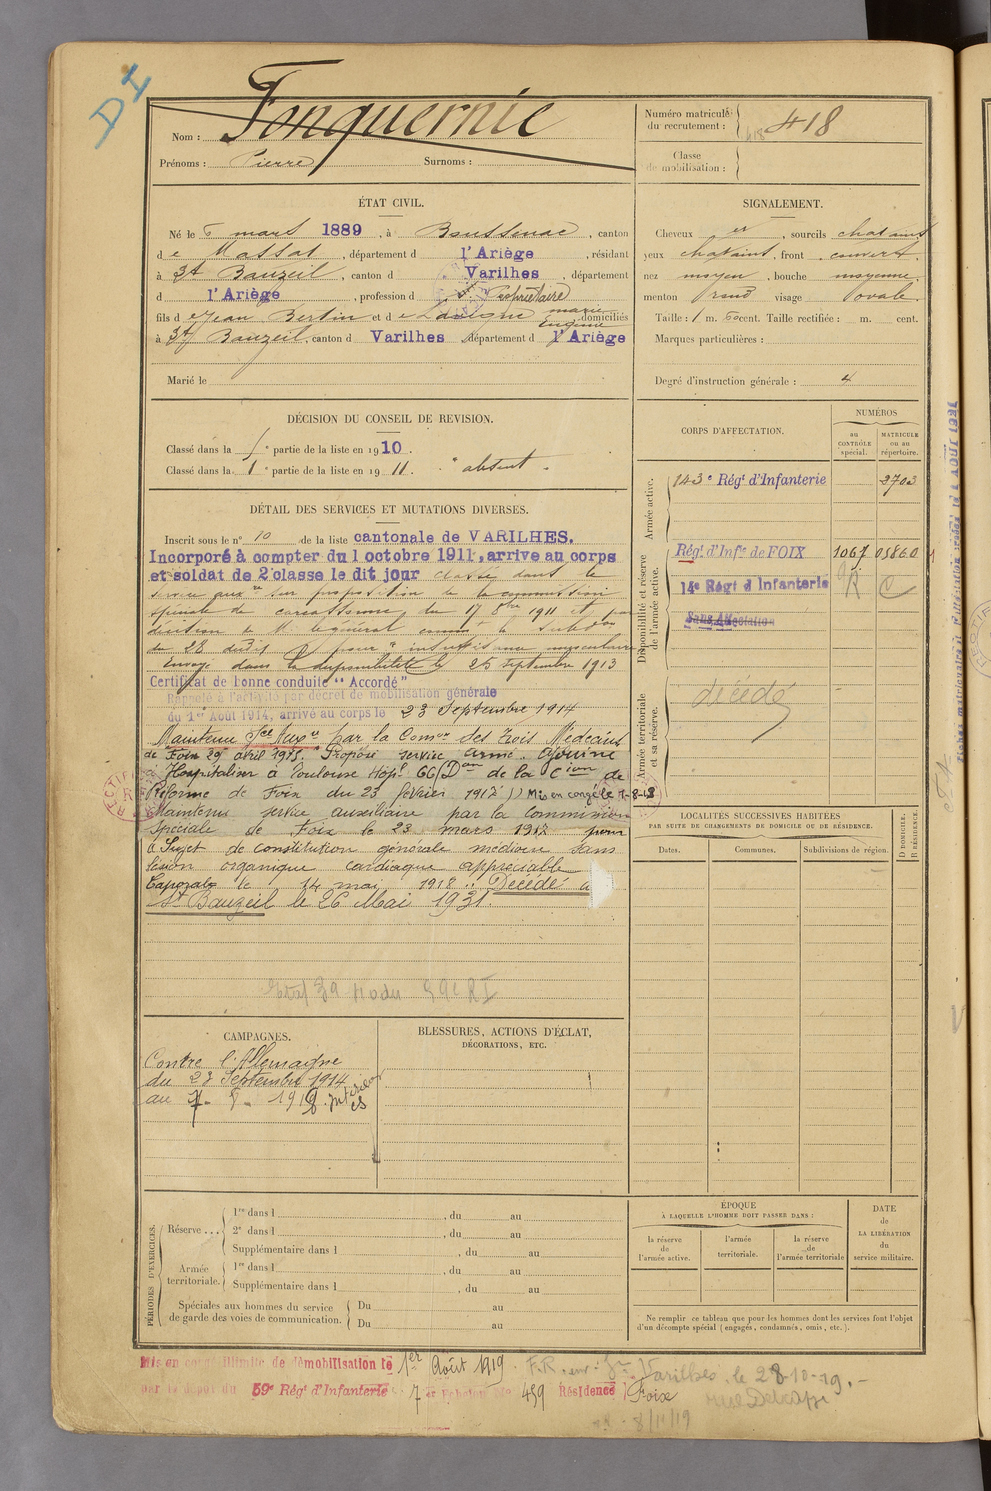 DI
Nom : Fonquernie
Prénoms : Pierre Surnoms :
Numéro matricule du recrutement : 418
Classe de mobilisation :
ÉTAT CIVIL.
Né le 6 mars 1889, à Boussenac, canton
de Massat, département d l'Ariège, résidant
à St Bauzeil, canton d Varilhes, département
d l'Ariège, profession d Propriétaire
fils de Jean Bertin et de marie Eugénie domiciliés
à St Bauzeil, canton d Varilhes département d l'Ariège
Marié le
SIGNALEMENT.
Cheveux et, sourcils chatains
yeux chatains, front couvert.
nez moyen, bouche moyenne.
menton rond visage ovale.
Taille : 1 m. 60 cent. Taille rectifiée : m. cent.
Marques particulières :
Degré d'instruction générale : 4
DÉCISION DU CONSEIL DE REVISION.
Classé dans la partie de la liste en 1910.
Classé dans la 1 partie de la liste en 1911. "absent"
CORPS D'AFFECTATION.
NUMÉROS
au CONTRÔLE spécial.
MATRICULE ou au répertoire.
Armée active.
143e Régt d'Infanterie 2703
Disponibilité et réserve de l'armée active.
Régt d'Infie de FOIX 1067 05860
14e Régt d'Infanterie R C
Sans Affectation
Armée territoriale et sa réserve.
décédé
DÉTAIL DES SERVICES ET MUTATIONS DIVERSES.
Inscrit sous le n° 10 de la liste cantonale de VARILHES.
Incorporé à compter du 1 octobre 1911, arrive au corps
et soldat de 2e classe le dit jour classé dans le
service auxre sur proposition de la commission
spéciale de carcassonne du 17 8bre 1911 et par
décision de M. le général commt la Subdon
du 28 dudit pour "insuffisance musculaire
Envoyé dans la disponibilité le 25 septembre 1913
Certificat de bonne conduite "Accordé"
Rappelé à l'activité par décret de mobilisation générale
du 1er Août 1914, arrivé au corps le 23 Septembre 1914
Maintenu Sce Auxre par la Comon des trois Médecins
de Foix 29 avril 1915. Proposé service armé. Ajourné
à Hospitaliser à Toulouse Hôpl 66 (Don de la Cion de
Réforme de Foix du 23 février 1917)) Mis en congé le 7-8-19
Maintenu service auxiliaire par la Commission
Spéciale de Foix le 23 mars 1917 pour
Sujet de constitution générale médiocre sans
lésion organique cardiaque appréciable
Caporal le 14 mai 1918. Décédé à
St Bauzeil le 26 Mai 1931.
LOCALITÉS SUCCESSIVES HABITÉES
PAR SUITE DE CHANGEMENTS DE DOMICILE OU DE RÉSIDENCE.
Dates. Communes. Subdivisions de région. D DOMICILE. R RÉSIDENCE.
CAMPAGNES.
Contre l'Allemagne
du 23 Septembre 1914
au 7-8-1919
BLESSURES, ACTIONS D'ÉCLAT,
DÉCORATIONS, ETC.
PÉRIODES D'EXERCICES.
Réserve ...
1re dans l , du au
2e dans l , du au
Supplémentaire dans l , du au
Armée territoriale.
1re dans l , du au
Supplémentaire dans l , du au
Spéciales aux hommes du service
de garde des voies de communication.
Du au
Du au
ÉPOQUE
À LAQUELLE L'HOMME DOIT PASSER DANS :
la réserve de l'armée active.
l'armée territoriale.
la réserve de l'armée territoriale
DATE de LA LIBÉRATION du service militaire.
Ne remplir ce tableau que pour les hommes dont les services font l'objet
d'un décompte spécial (engagés, condamnés, omis, etc.).
Mis en congé illimité de démobilisation le 1er Août 1919.
par le dépôt du 59e Régt d'Infanterie 7 Echelon No 459 Résidence Foix
Varilhes, le 28-10-19.-
8/11/19